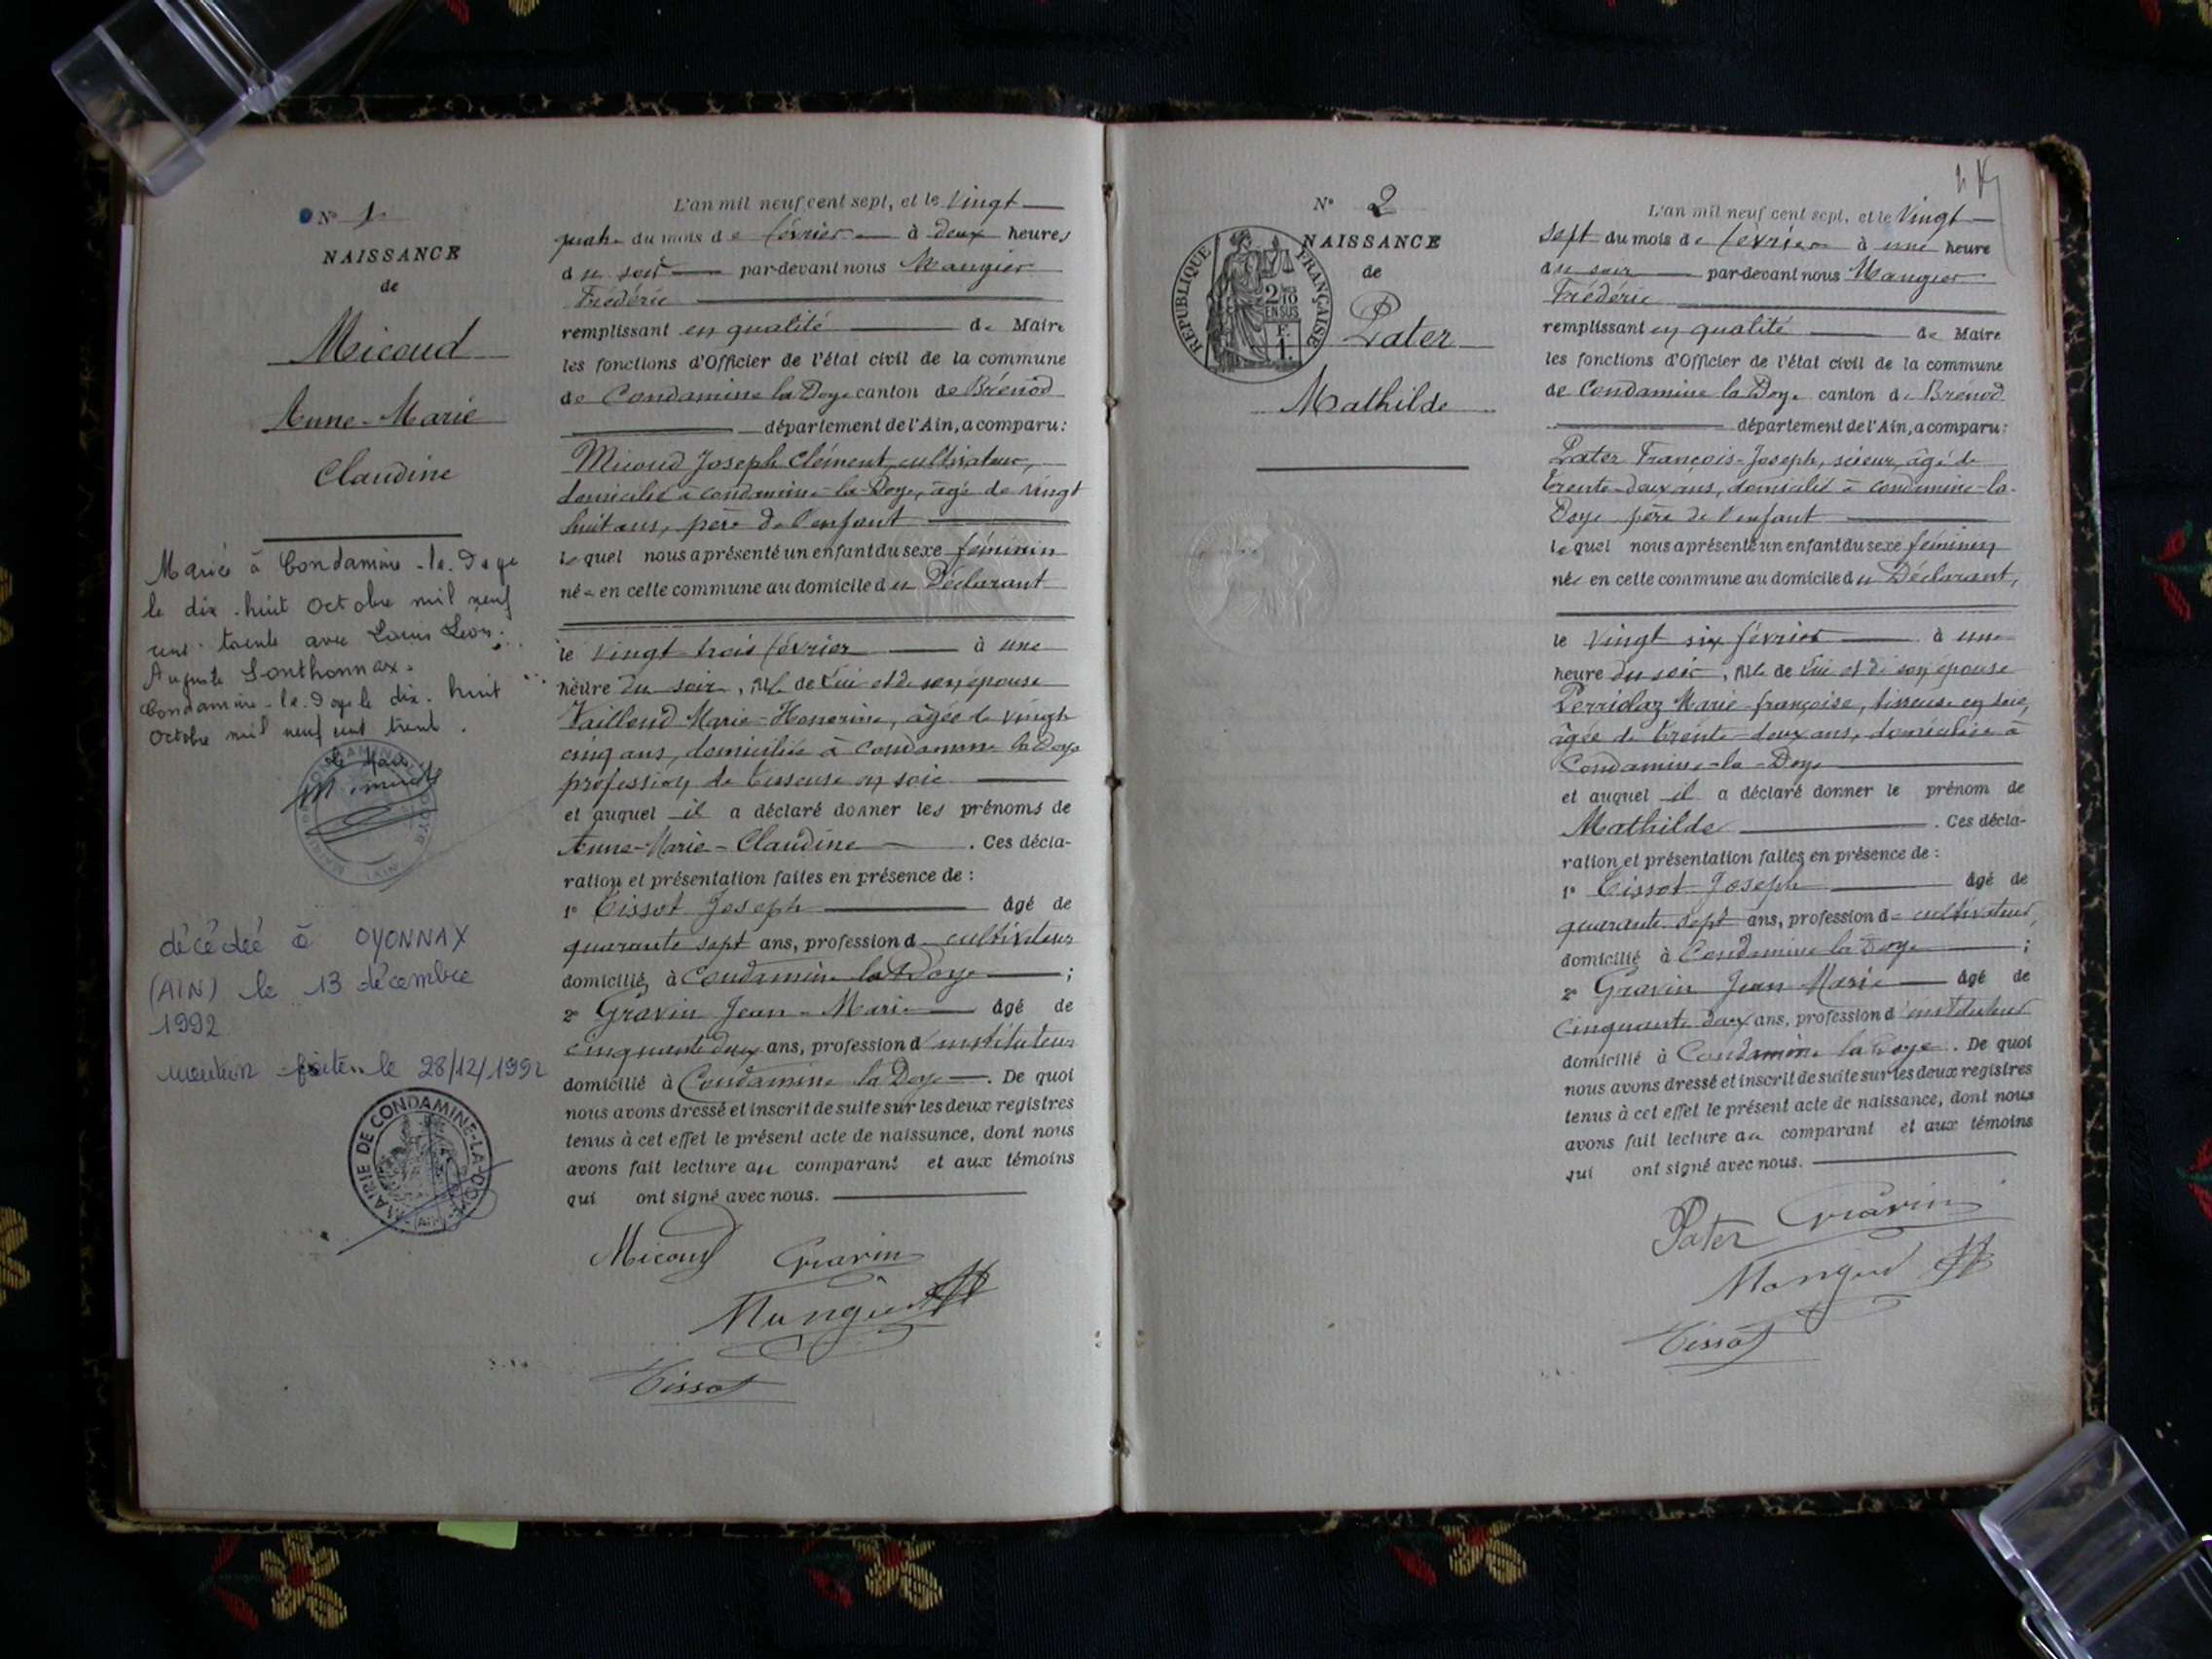 N° 1
NAISSANCE
de
Micoud
Anne-Marie
Claudine
Mariée à Condamine-la-Doye
le dix-huit Octobre mil neuf
cent trente avec Louis Léon
Auguste Sonthonnax.
Condamine-la-Doye le dix-huit
Octobre mil neuf cent trente.
Le Maire
décédée à OYONNAX
(AIN) le 13 décembre
1992
mention faite le 28/12/1992
MAIRIE DE CONDAMINE-LA-DOYE
(AIN)
L'an mil neuf cent sept, et le vingt
quatre du mois de février à deux heures
du soir par-devant nous Mangier
Frédéric
remplissant en qualité de Maire
les fonctions d'Officier de l'état civil de la commune
de Condamine la Doye canton de Brénod
département de l'Ain, a comparu:
Micoud Joseph Clément, cultivateur,
domicilié à Condamine-la-Doye, âgé de vingt
huit ans, père de l'enfant
lequel nous a présenté un enfant du sexe féminin
née en cette commune au domicile du Déclarant
le vingt trois février à une
heure du soir, fille de lui et de son épouse
Vailloud Marie-Honorine, âgée de vingt
cinq ans, domiciliée à Condamine la Doye
profession de tisseuse en soie
et auquel il a déclaré donner les prénoms de
Anne-Marie-Claudine. Ces décla-
ration et présentation faites en présence de:
1° Tissot Joseph âgé de
quarante sept ans, profession de cultivateur
domicilié à Condamine la Doye;
2° Gravin Jean-Marie âgé de
cinquante deux ans, profession d'instituteur
domicilié à Condamine la Doye. De quoi
nous avons dressé et inscrit de suite sur les deux registres
tenus à cet effet le présent acte de naissance, dont nous
avons fait lecture au comparant et aux témoins
qui ont signé avec nous.
Micoud Gravin
Mangier
Tissot
N° 2
NAISSANCE
de
Pater
Mathilde
REPUBLIQUE FRANÇAISE
2/10
EN SUS
F.
1.
L'an mil neuf cent sept, et le vingt
sept du mois de février à une heure
du soir par-devant nous Mangier
Frédéric
remplissant en qualité de Maire
les fonctions d'Officier de l'état civil de la commune
de Condamine la Doye canton de Brénod
département de l'Ain, a comparu:
Pater François-Joseph, scieur, âgé de
trente-deux ans, domicilié à Condamine-la-
Doye père de l'enfant
lequel nous a présenté un enfant du sexe féminin
née en cette commune au domicile du Déclarant,
le vingt six février à une
heure du soir, fille de lui et de son épouse
Perridaz Marie-françoise, tisseuse en soie,
âgée de trente-deux ans, domiciliée à
Condamine-la-Doye
et auquel il a déclaré donner le prénom de
Mathilde. Ces décla-
ration et présentation faites en présence de:
1° Tissot Joseph âgé de
quarante sept ans, profession de cultivateur,
domicilié à Condamine la Doye;
2° Gravin Jean Marie âgé de
cinquante deux ans, profession d'instituteur
domicilié à Condamine la Doye. De quoi
nous avons dressé et inscrit de suite sur les deux registres
tenus à cet effet le présent acte de naissance, dont nous
avons fait lecture au comparant et aux témoins
qui ont signé avec nous.
Pater Gravin
Mangier
Tissot